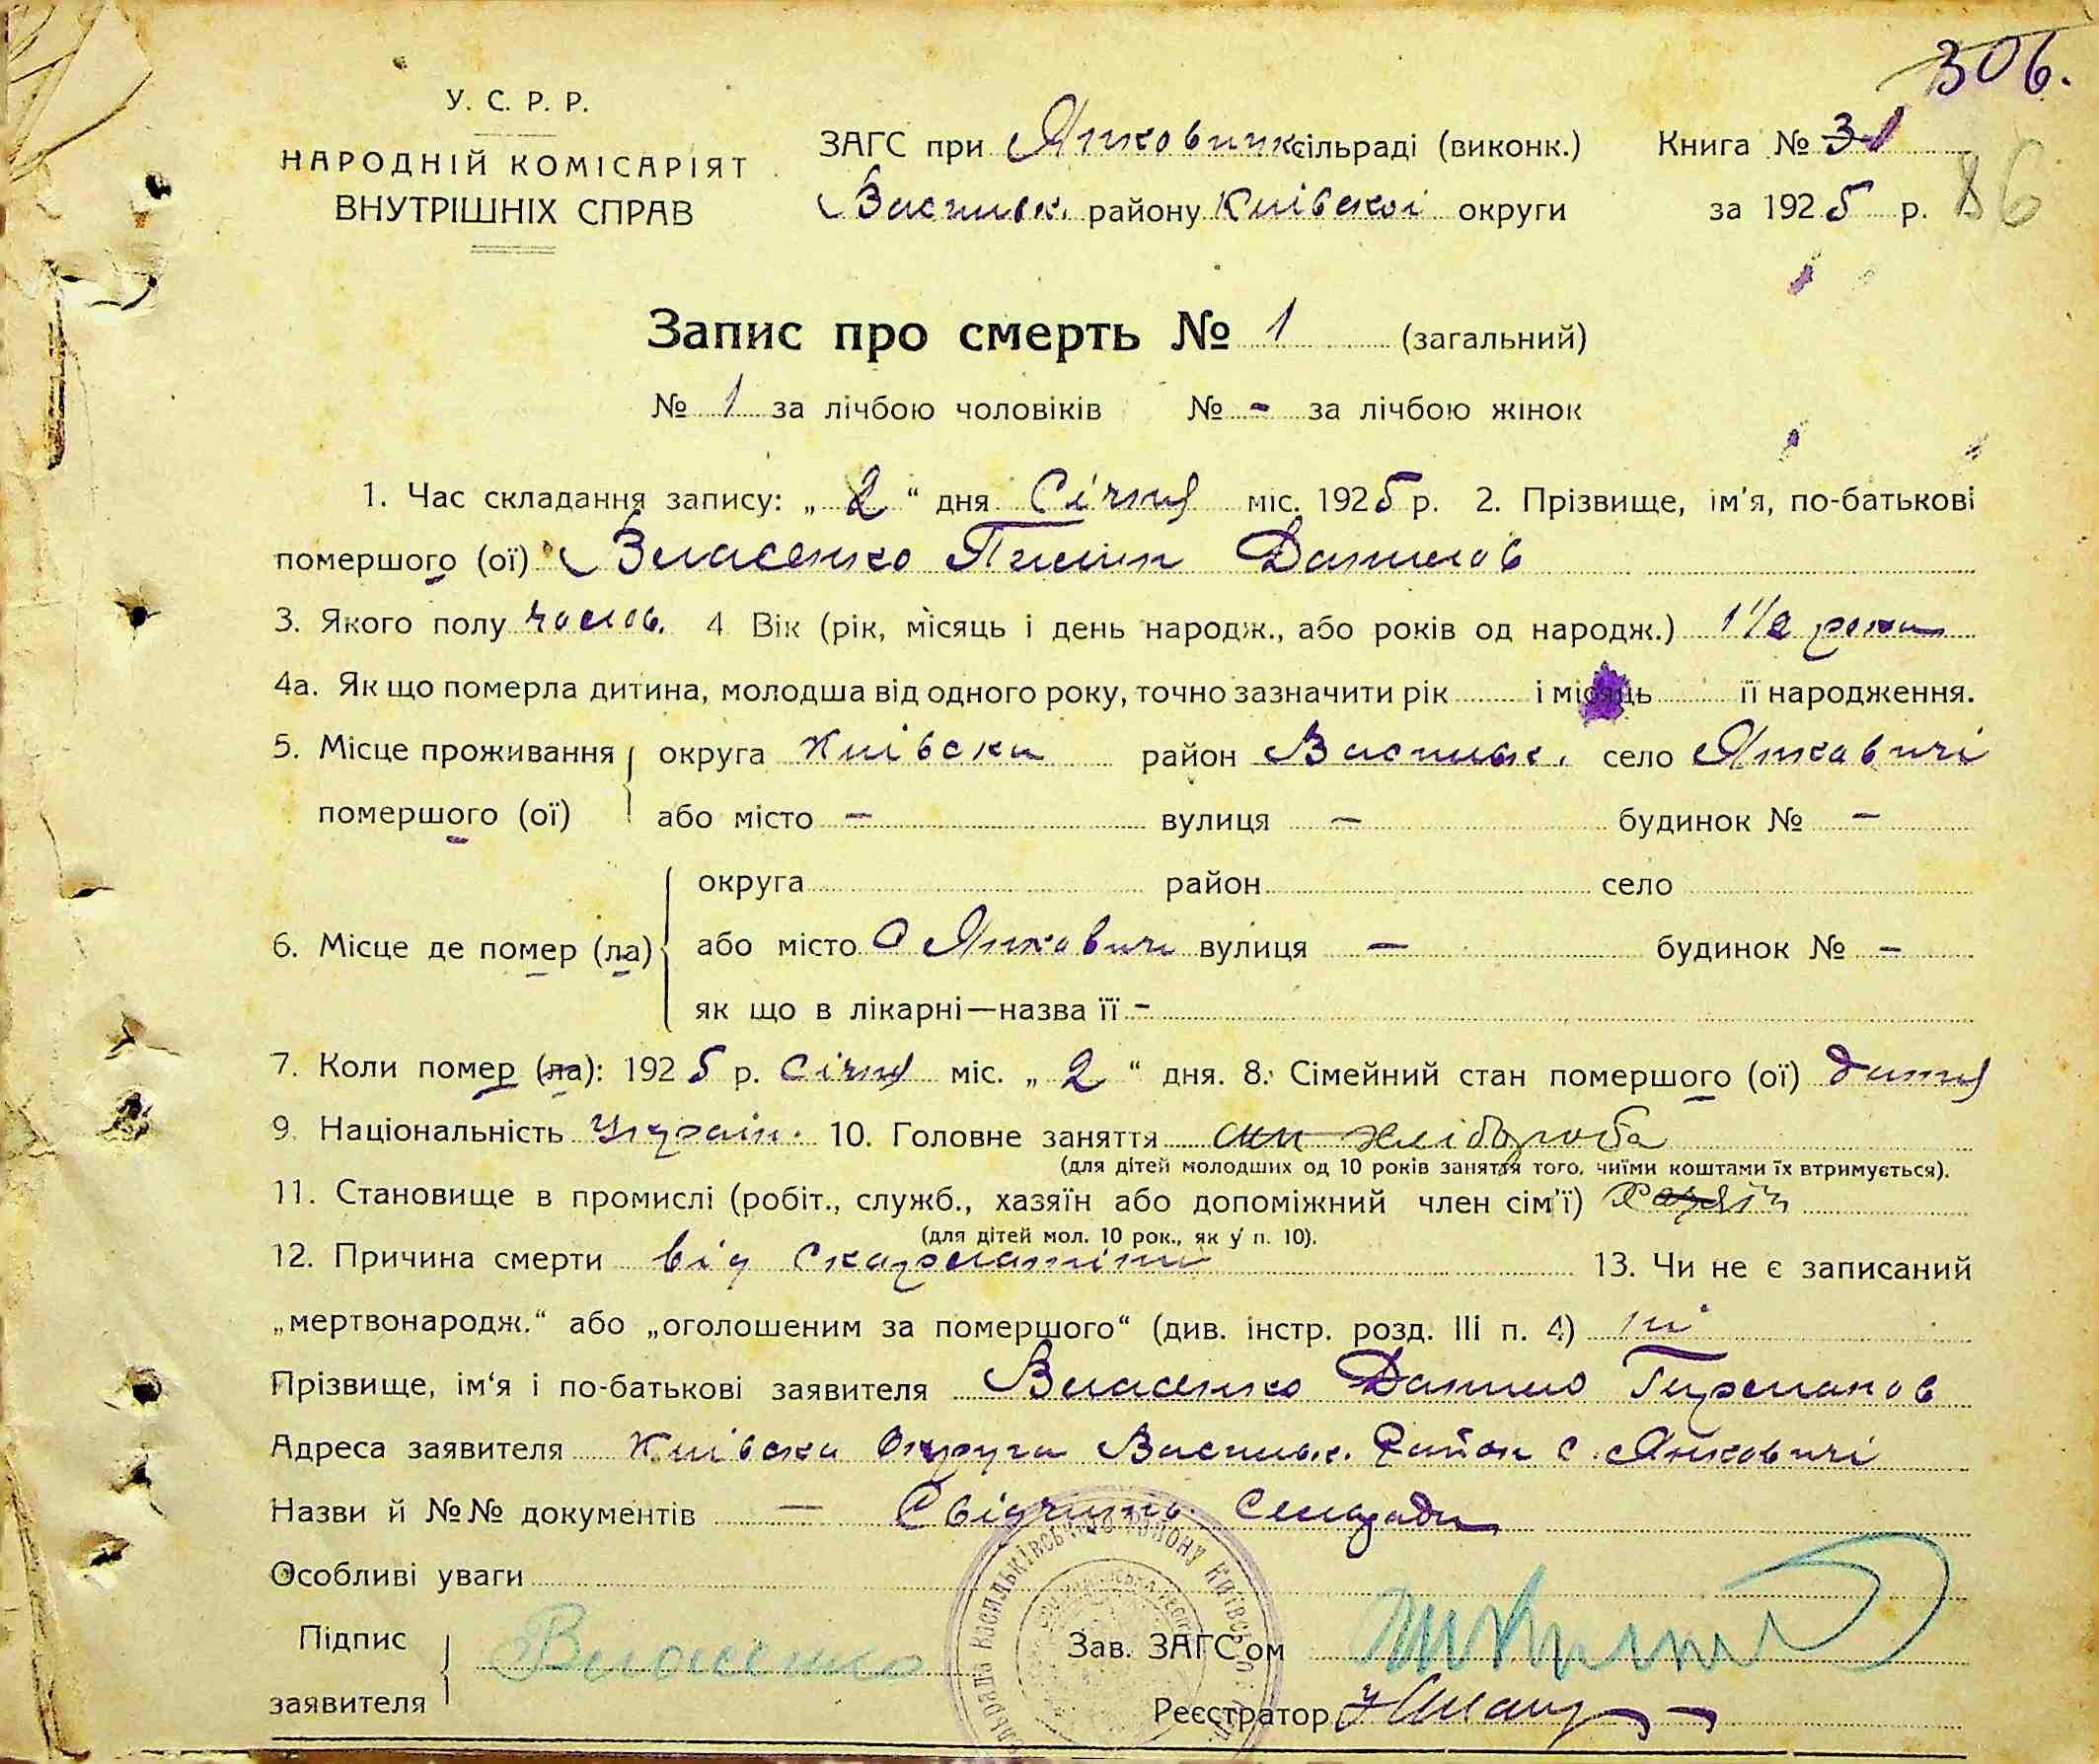 306.
У. С. Р. Р.
НАРОДНІЙ КОМІСАРІЯТ
ВНУТРІШНІХ СПРАВ
ЗАГС при Янковицк сільраді (виконк.)
Васильк. району Київскої округи
Книга №
за 1925 р. 86
Запис про смерть № 1 (загальний)
№ 1 за лічбою чоловіків № - за лічбою жінок
1. Час складання запису: „ 2 “ дня Січня міс. 1925 р. 2. Прізвище, ім'я, по-батькові
помершого (ої) Власенко Пилип Данилов
3. Якого полу чолов. 4 Вік (рік, місяць і день народж., або років од народж.) 1 1/2 роки
4а. Як що померла дитина, молодша від одного року, точно зазначити рік і місяць її народження.
5. Місце проживання округа Київска район Васильк. село Янковичі
помершого (ої) або місто – вулиця – будинок № –
округа район село
6. Місце де помер (ла) або місто С Янковичи вулиця – будинок № –
як що в лікарні—назва її -
7. Коли помер (ла): 1925 р. Січня міс. „ 2 “ дня. 8. Сімейний стан помершого (ої) дитя
9. Національність Україн. 10. Головне заняття син хлібороба
(для дітей молодших од 10 років заняття того, чиїми коштами їх втримується).
11. Становище в промислі (робіт., служб., хазяїн або допоміжний член сім'ї) Хазяїн
(для дітей мол. 10 рок., як у п. 10).
12. Причина смерти від Скарлатіни 13. Чи не є записаний
„мертвонародж.“ або „оголошеним за помершого“ (див. інстр. розд. III п. 4) ні
Прізвище, ім'я і по-батькові заявителя Власенко Данило Гирманов
Адреса заявителя Київска Округа Васильк. Район с. Янковичі
Назви й №№ документів — Свідчинь. Сельради
Особливі уваги
Підпис
заявителя
Власенко
Зав. ЗАГС'ом
Реєстратор